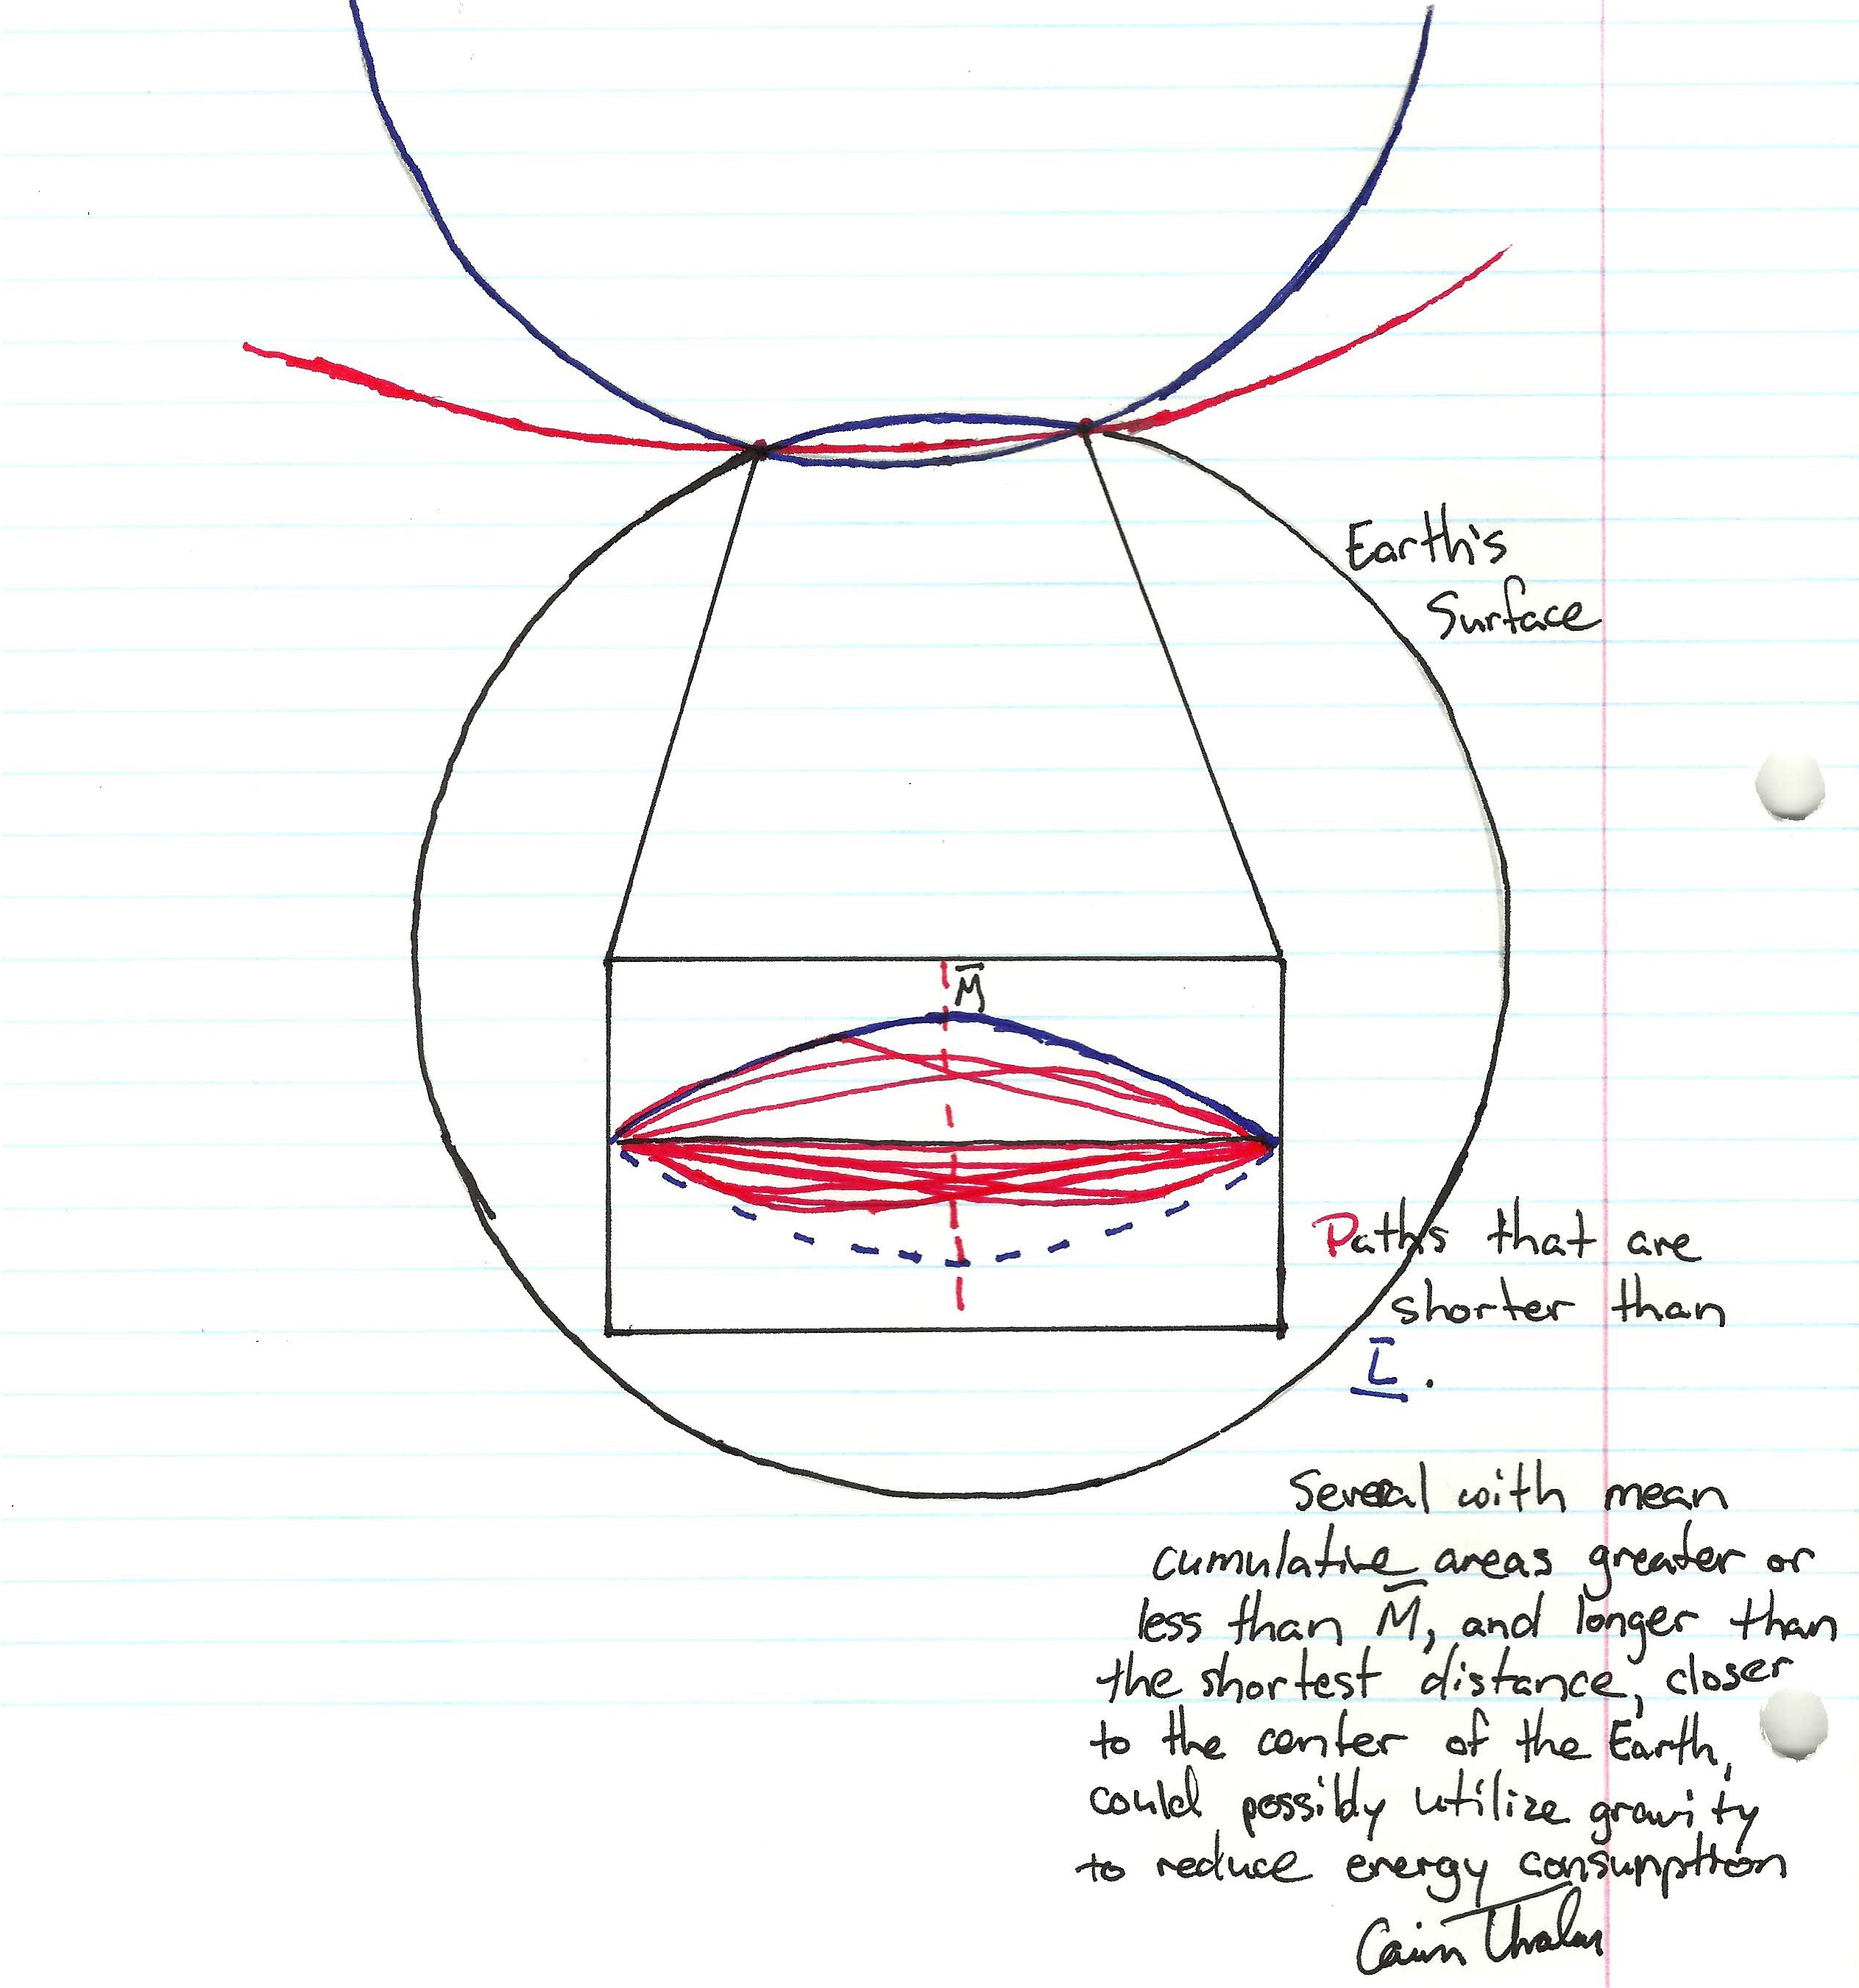 Earth's
Surface
M̄
Paths that are
shorter than
L̄.
Several with mean
cumulative areas greater or
less than M̄, and longer than
the shortest distance, closer
to the center of the Earth,
could possibly utilize gravity
to reduce energy consumpttion